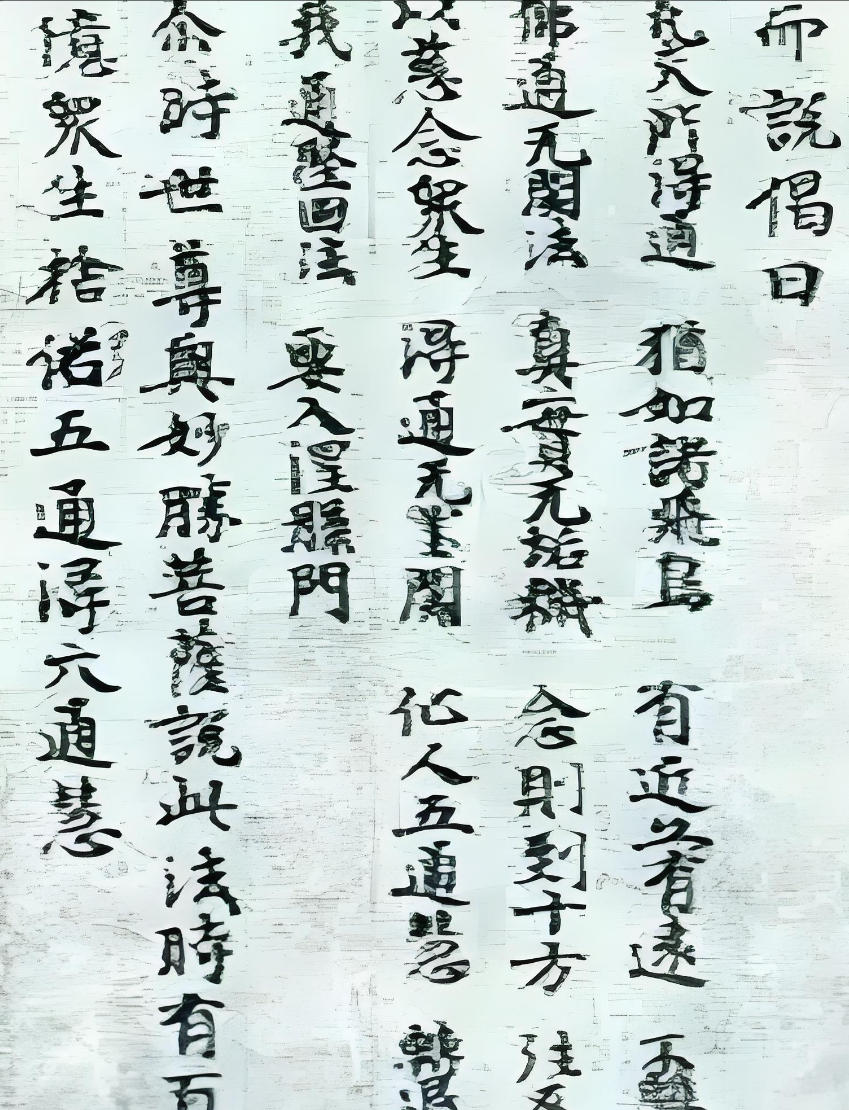 而說偈曰
凡夫所得通 猶如諸飛鳥 有近必有遠
佛通无閡法 真實无垢穢 念則到十方 往
以慈念眾生 得通无罣閡 仙人五通慧
我通堅固法 要入涅槃門
尒時世尊與妙勝菩薩說此法時有百
億眾生捨諸五通得六通慧